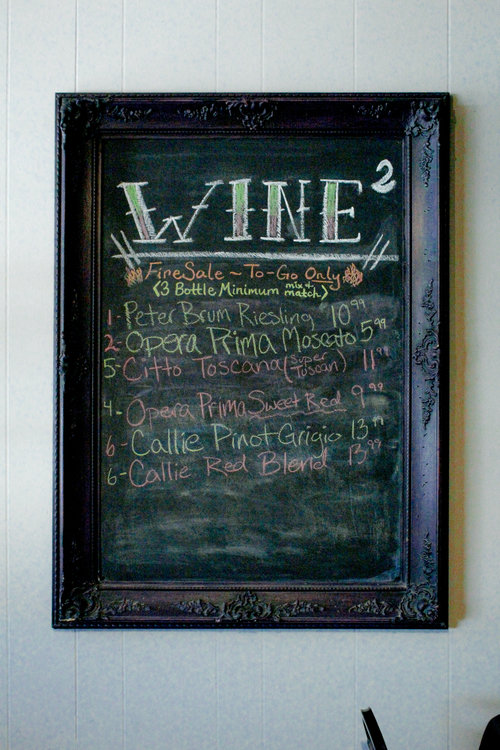 WINE²
Fire Sale ~ To-Go Only
(3 Bottle Minimum mix + match)
1-Peter Brum Riesling $10 99
2-Opera Prima Moscato 5 99
5-Citto Toscana (Super Tuscan) 11 99
4-Opera Prima Sweet Red 9 99
6-Callie Pinot Grigio 13 99
6-Callie Red Blend 13 99